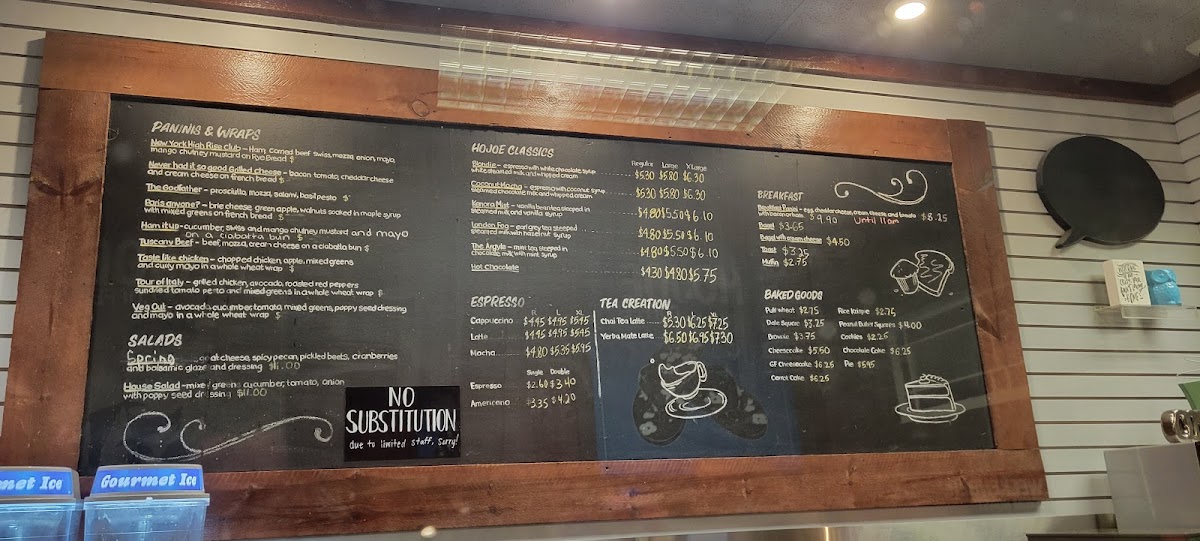 PANINIS & WRAPS
New York High Rise Club - Ham, corned beef, swiss, mozza, onion, mayo,
mango chutney mustard on Rye Bread $
Never had it so good Grilled cheese - bacon, tomato, cheddar cheese
and cream cheese on french bread $
The Godfather - prosciutto, mozza, salami, basil pesto $
Paris anyone? - brie cheese, green apple, walnuts soaked in maple syrup
with mixed greens on french bread $
Ham it up - cucumber, swiss and mango chutney mustard and mayo
on a ciabatta bun $
Tuscany Beef - beef, mozza, cream cheese on a ciabatta bun $
Taste like chicken - chopped chicken, apple, mixed greens
and curry mayo in a whole wheat wrap $
Tour of Italy - grilled chicken, avocado, roasted red peppers
sundried tomato pesto and mixed greens in a whole wheat wrap $
Veg Out - avocado, cucumber, tomato, mixed greens, poppy seed dressing
and mayo in a whole wheat wrap $
SALADS
Spring goat cheese, spicy pecan, pickled beets, cranberries
and balsamic glaze and dressing $11.00
House Salad - mixed greens, cucumber, tomato, onion
with poppy seed dressing $11.00
NO
SUBSTITUTION
due to limited staff, Sorry!
HOJOE CLASSICS
Regular Large X'Large
Blondie - espresso with white chocolate syrup
white steamed milk and whipped cream $5.30 $5.80 $6.30
Coconut Mocha - espresso with coconut syrup
steamed chocolate milk and whipped cream $5.30 $5.80 $6.30
Kenora Mist - vanilla bean tea steeped in
steamed milk, and vanilla syrup $4.80 $5.50 $6.10
London Fog - earl grey tea steeped
steamed milk with hazelnut syrup $4.80 $5.50 $6.10
The Argyle - mint tea steeped in
chocolate milk with mint syrup $4.80 $5.50 $6.10
Hot Chocolate $4.30 $4.80 $5.75
ESPRESSO
R L XL
Cappuccino $4.45 $4.95 $5.45
Latte $4.45 $4.95 $5.45
Mocha $4.80 $5.35 $5.95
Single Double
Espresso $2.60 $3.40
Americano $3.35 $4.20
TEA CREATION
R L XL
Chai Tea Latte $5.30 $6.25 $7.25
Yerba Mate Latte $6.50 $6.95 $7.30
BREAKFAST
Breakfast Panini - egg, cheddar cheese, cream cheese, and tomato $8.25
with bacon or ham $9.90 Until 11am
Bagel $3.65
Bagel with cream cheese $4.50
Toast $3.25
Muffin $2.75
BAKED GOODS
Puff wheat $2.75
Date Square $3.25
Brownie $3.75
Cheesecake $5.50
GF Cheesecake $6.25
Carrot Cake $6.25
Rice Krispie $2.75
Peanut Butter Squares $4.00
Cookies $2.25
Chocolate Cake $6.25
Pie $5.95
Gourmet Ice